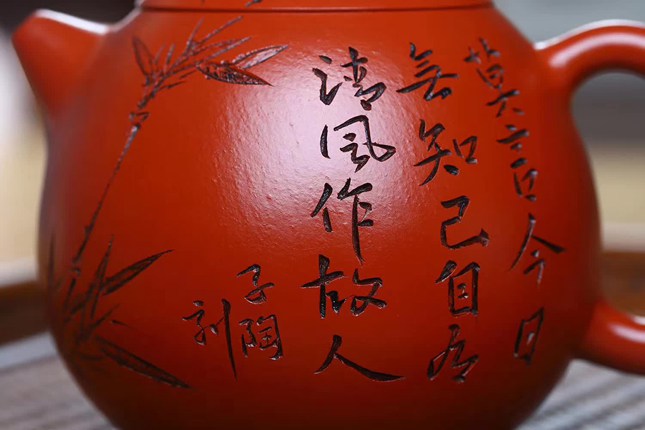 莫言今日
无知己自有
清风作故人
子陶
刻